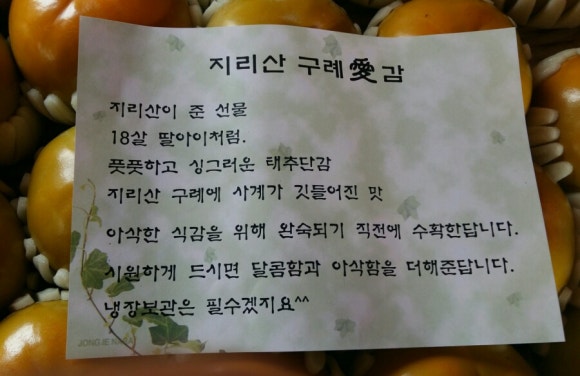 지리산 구례愛감
지리산이 준 선물
18살 딸아이처럼.
풋풋하고 싱그러운 태추단감
지리산 구례에 사계가 깃들어진 맛
아삭한 식감을 위해 완숙되기 직전에 수확한답니다.
시원하게 드시면 달콤함과 아삭함을 더해준답니다.
냉장보관은 필수겠지요^^